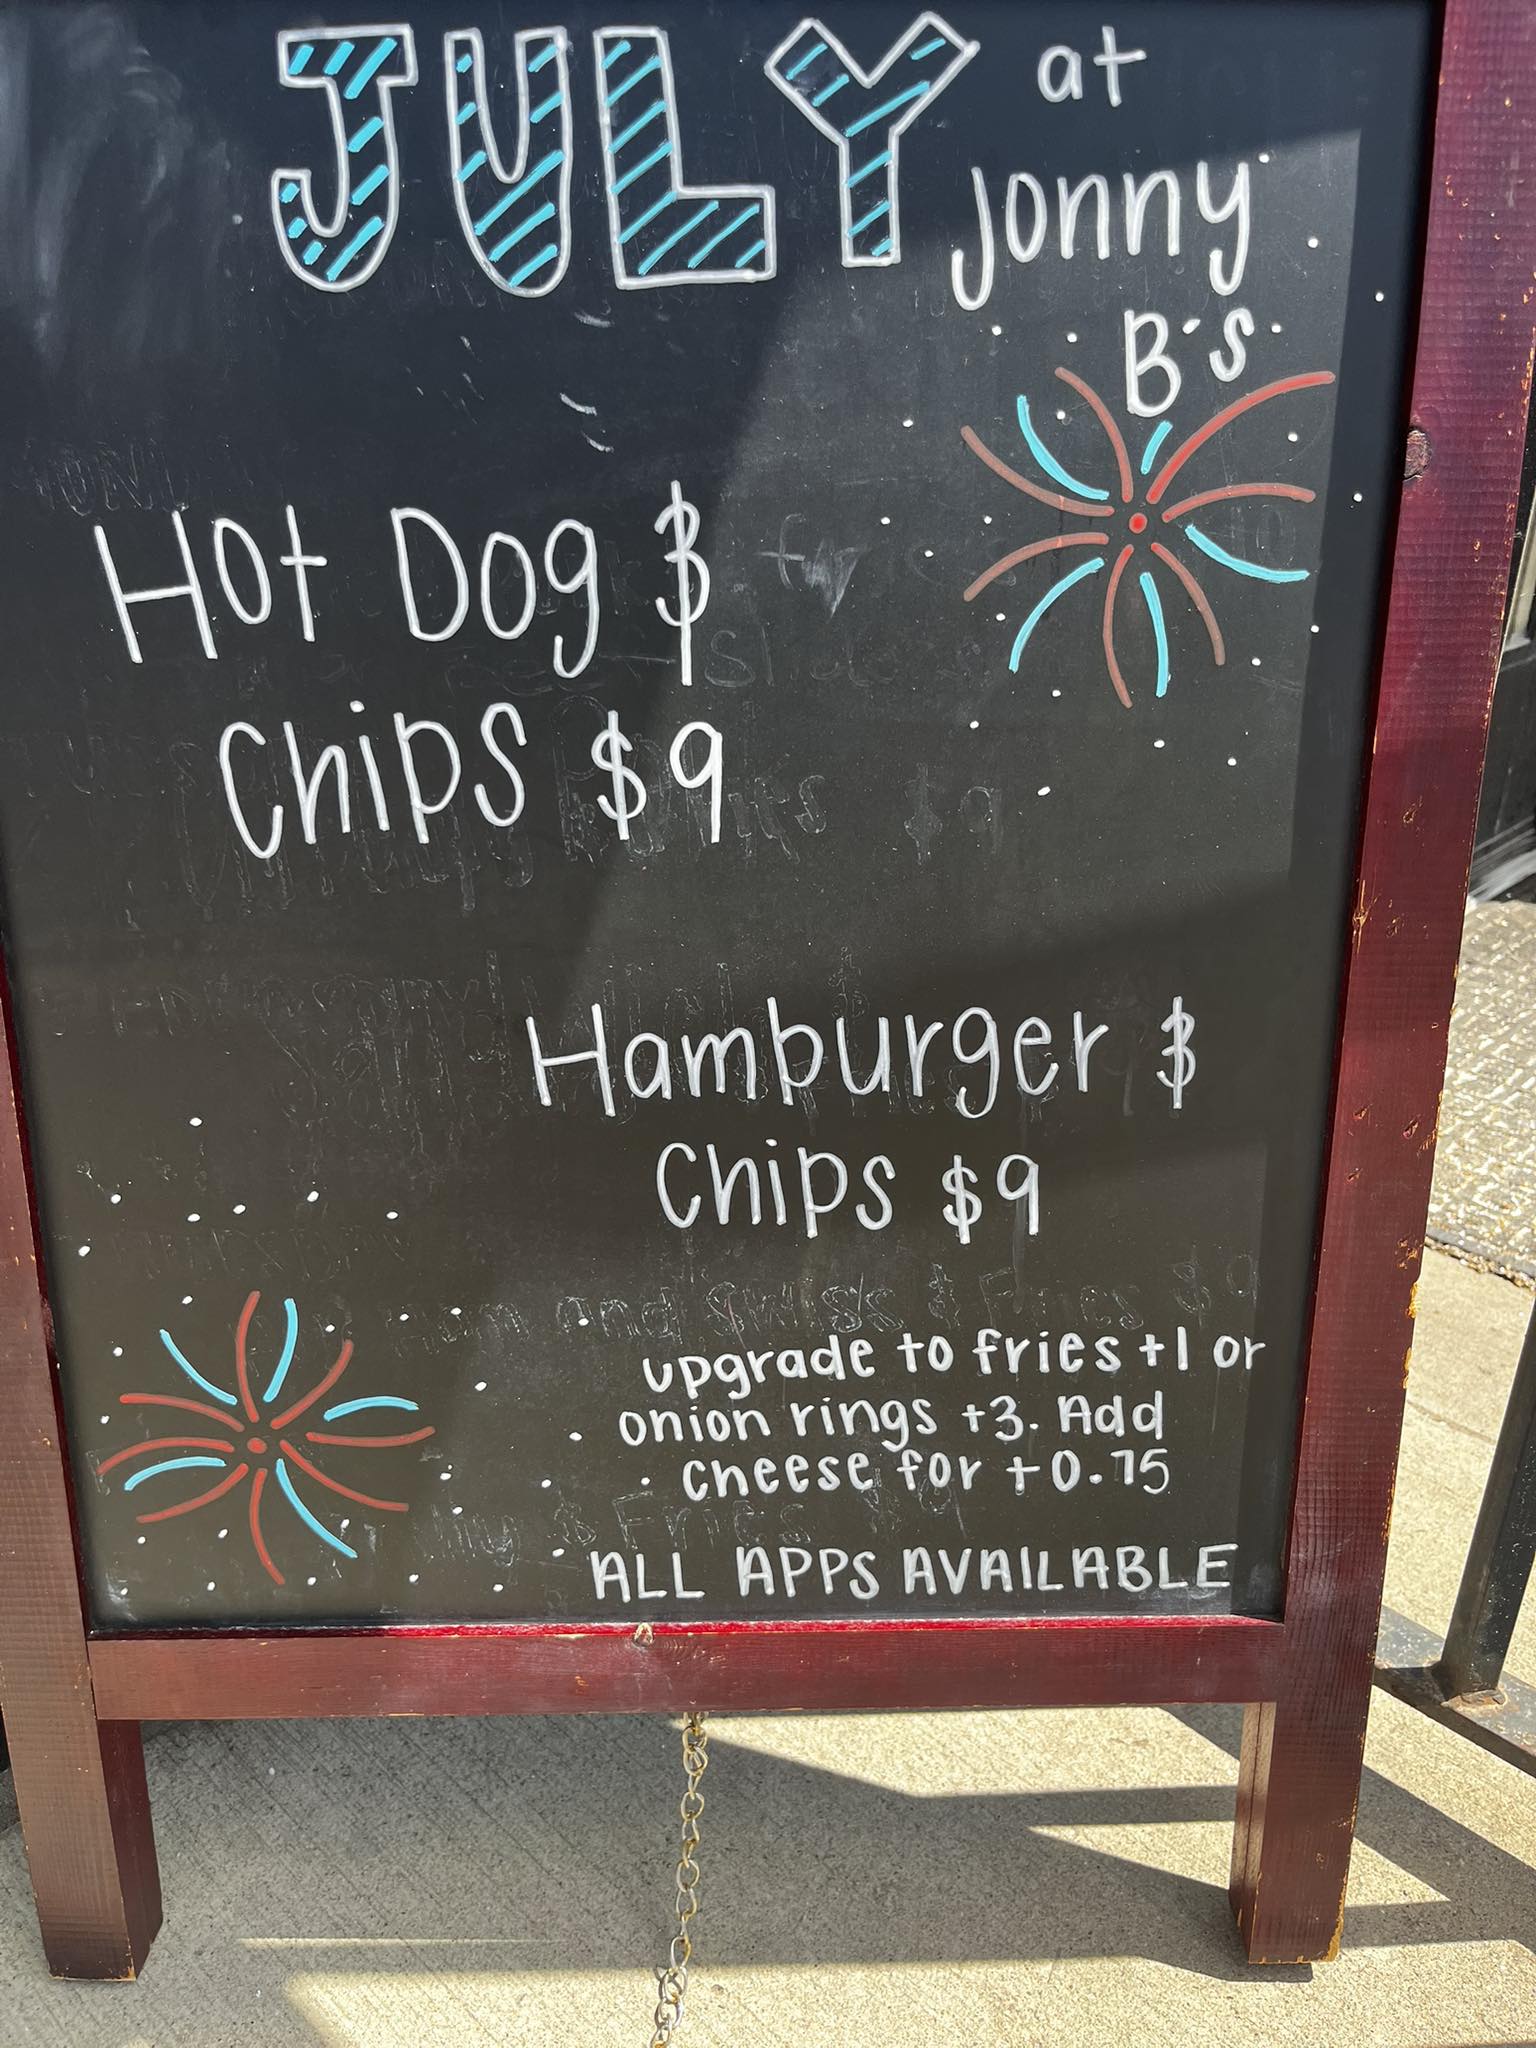 JULY at
jonny
B's
Hot Dog $
Chips $9
Hamburger $
Chips $9
upgrade to fries +1 or
onion rings +3. Add
cheese for +0.75
ALL APPS AVAILABLE